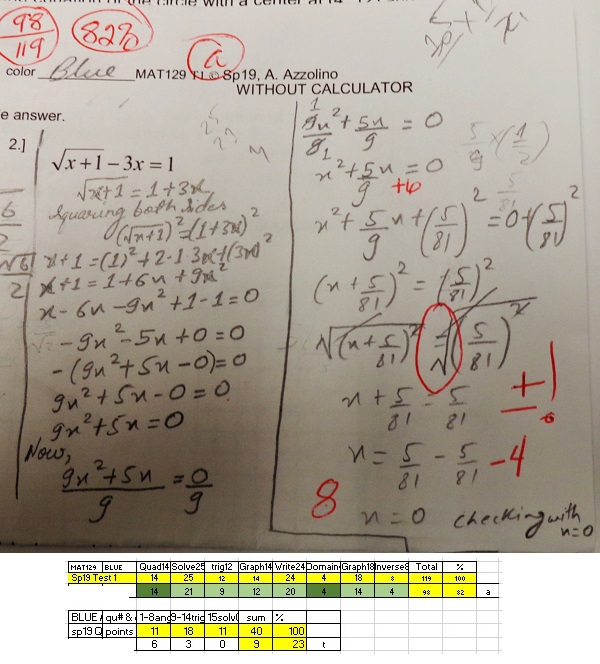 98
119
82%
a
color Blue MAT129 T1 © Sp19, A. Azzolino
WITHOUT CALCULATOR
e answer.
2.]
√x+1 – 3x = 1
√x+1 = 1+3x
Squaring both sides
(√x+1)² = (1+3x)²
x+1 = (1)² + 2·1·3x + (3x)²
x+1 = 1+6x+9x²
x-6x-9x²+1-1=0
-9x²-5x+0=0
-(9x²+5x-0)=0
9x²+5x-0=0
9x²+5x=0
Now,
9x²+5x/9 = 0/9
9x²/9 + 5x/9 = 0
x²+5x/9 = 0
+6
x²+5/9x+(5/81)² = 0+(5/81)²
(x+5/81)² = (5/81)²
√(x+5/81)² = √(5/81)²
x+5/81 = 5/81
±1
x = 5/81 - 5/81 -4
8
x = 0 checking with x=0
MAT129 BLUE Quad14 Solve25 trig12 Graph14 Write24 Domain Graph18 Inverse8 Total %
Sp19 Test 1 14 25 12 14 24 4 18 8 119 100
14 21 9 12 20 4 14 4 98 82 a
BLUE qu# & 1-8ang 9-14trig 15solv sum %
sp19 Q points 11 18 11 40 100
6 3 0 9 23 t